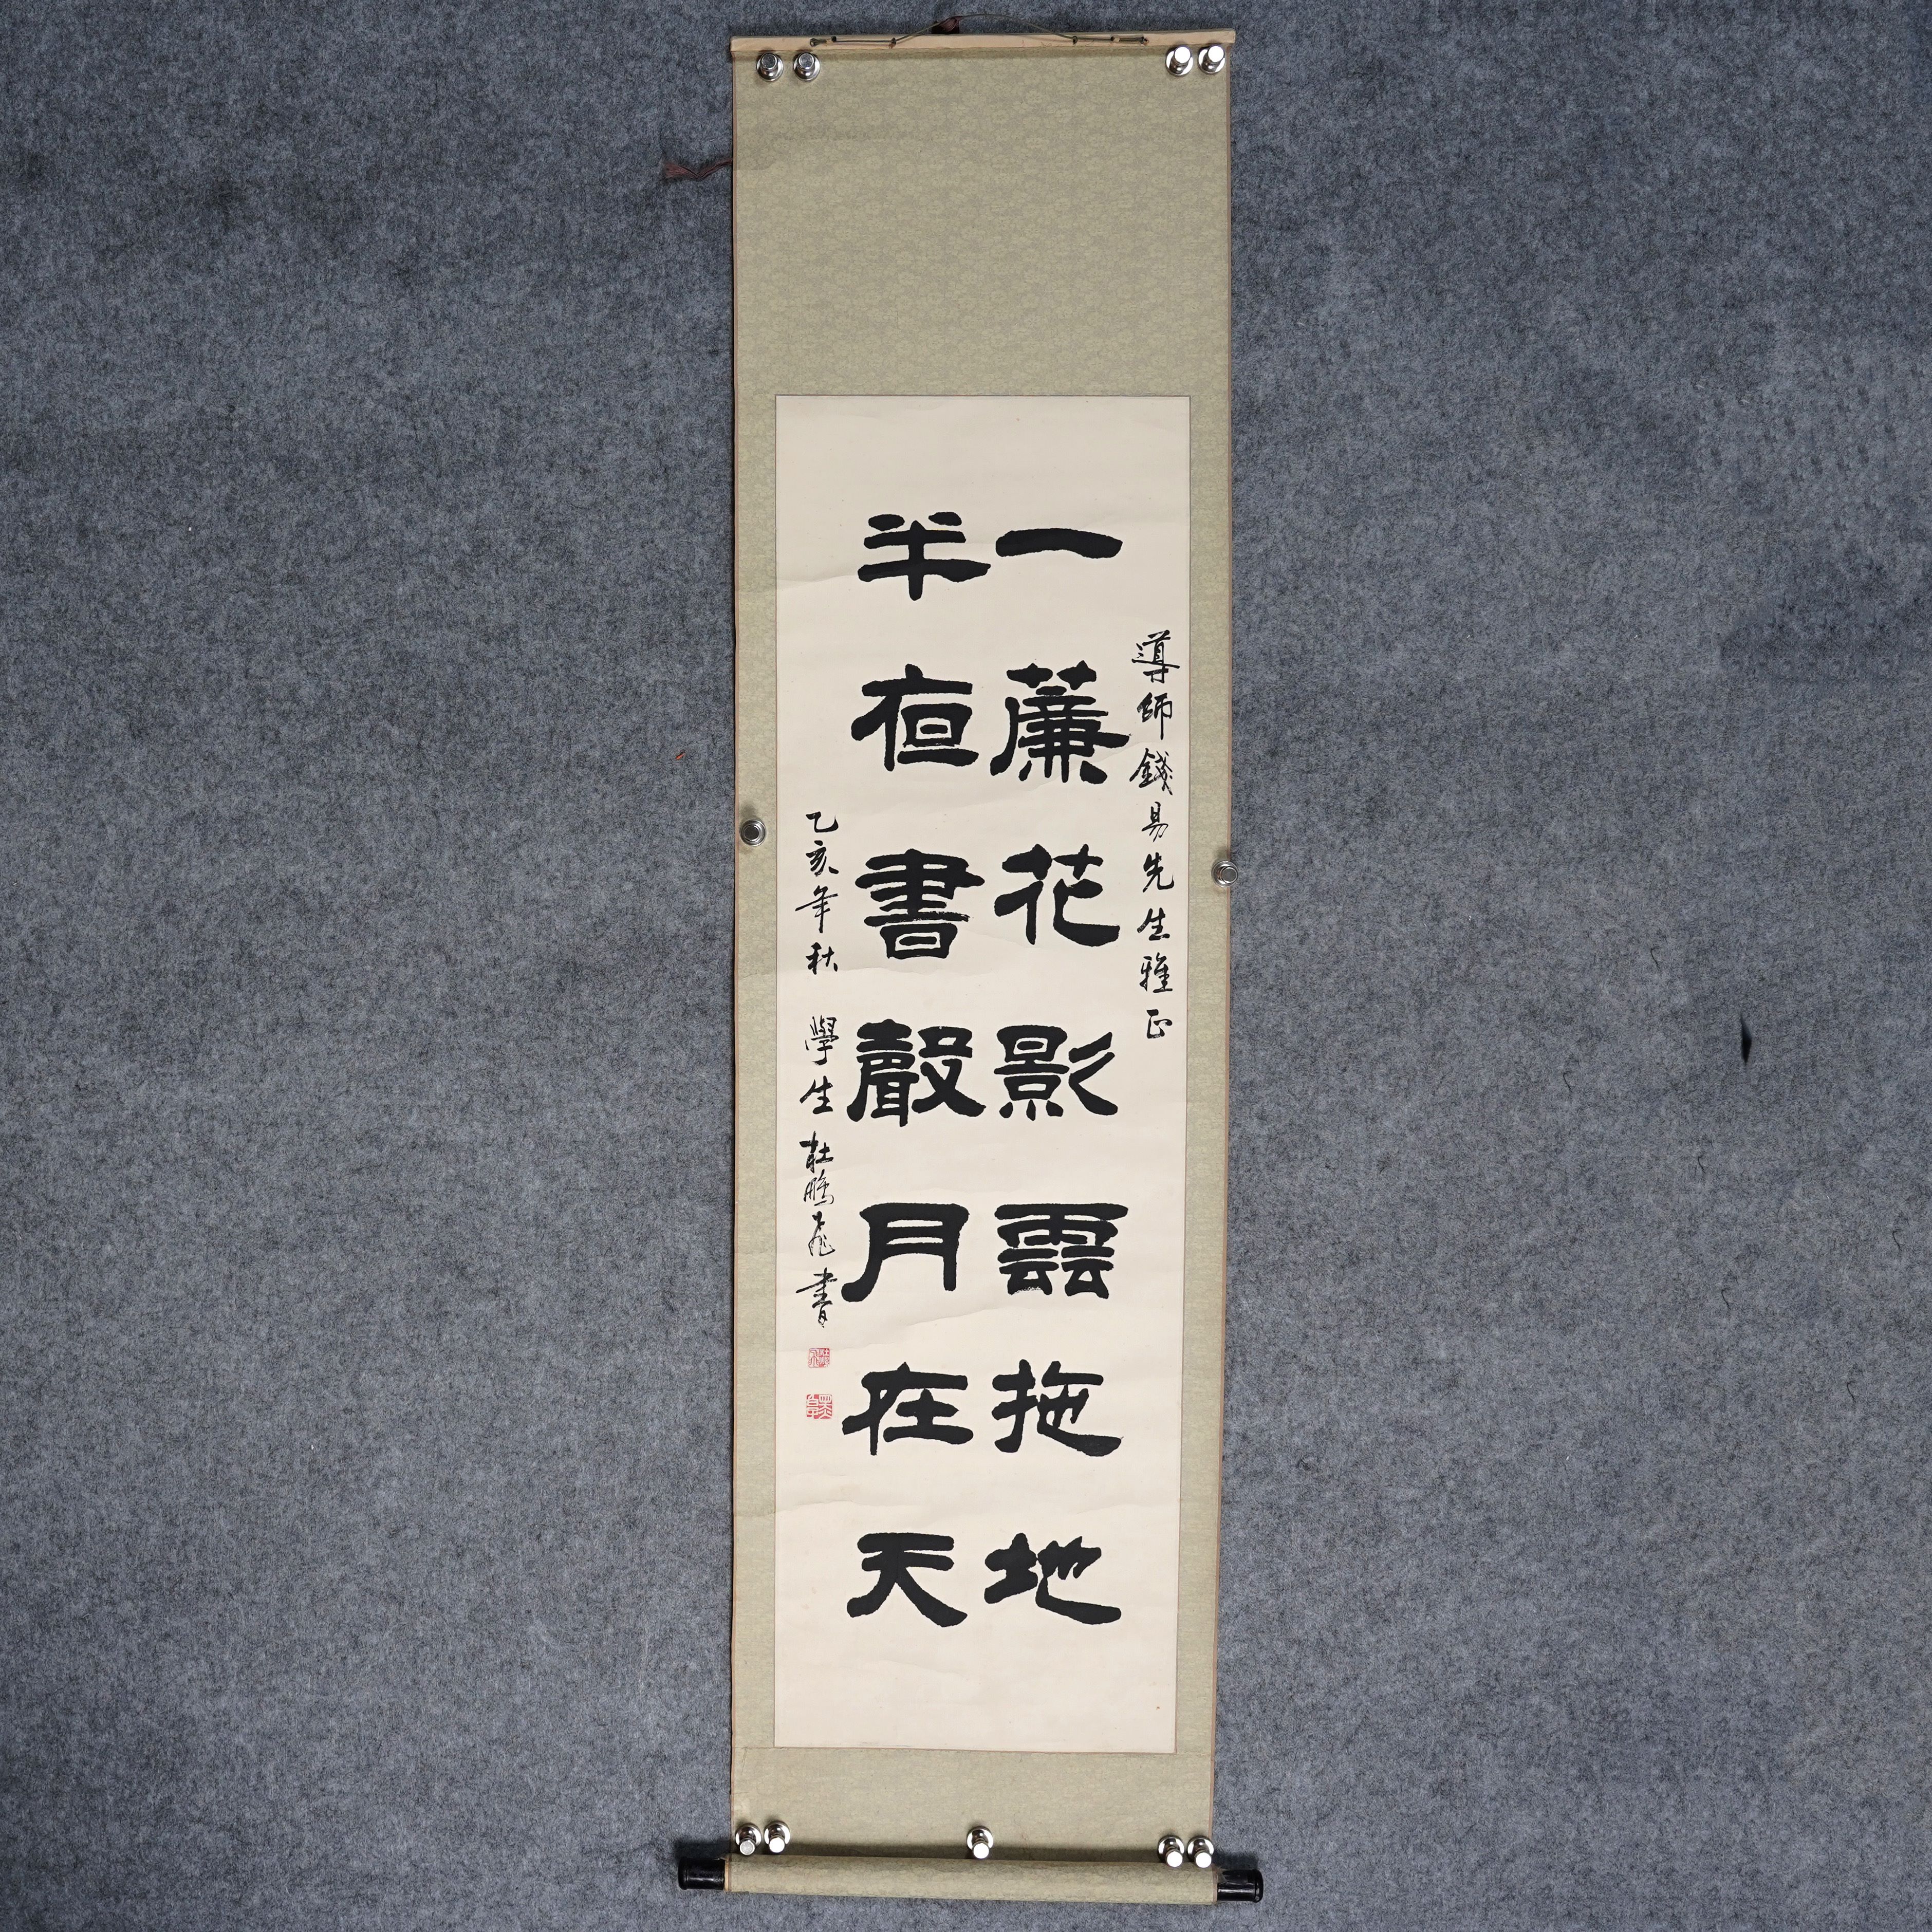 導師錢易先生雅正
一薕花影雲拖地
半夜書聲月在天
乙亥年秋 學生杜鵬飛書